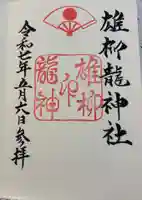 雄柳龍神社
雄柳
之印
龍神
令和七年五月六日参拝